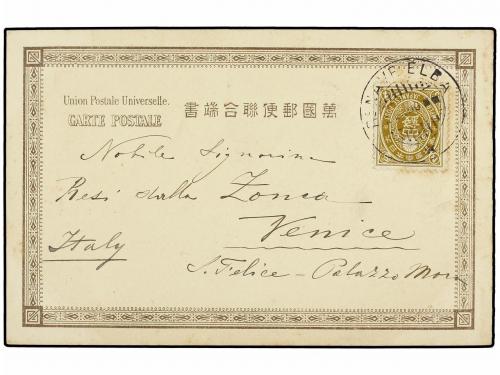 Union Postale Universelle.
CARTE POSTALE
書端合聯便郵國萬
Nobile Signorina
Resi dalla Zonca
Venice
Italy
S. Felice - Palazzo
ELBA